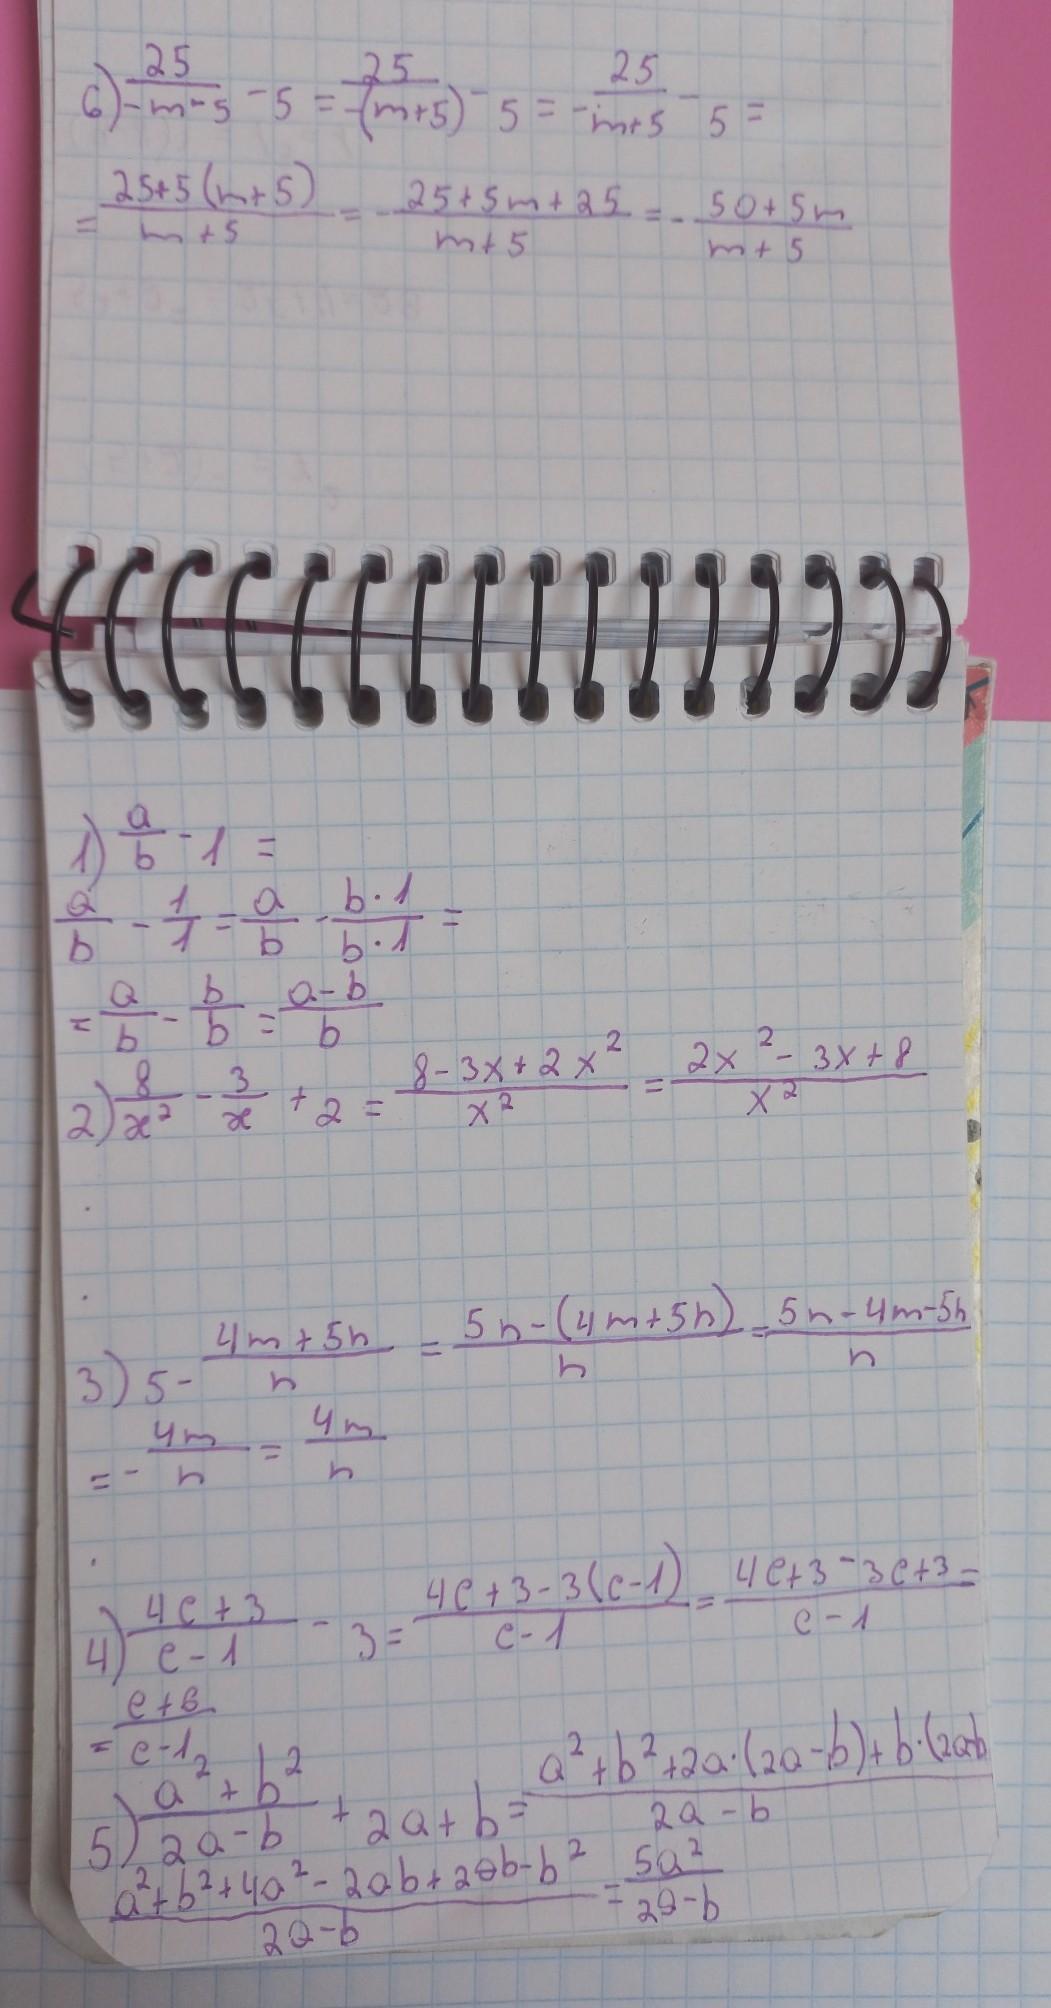 6) 25/(-m-5) - 5 = 25/(-(m+5)) - 5 = - 25/(m+5) - 5 =
= (25+5(m+5))/(m+5) = - (25+5m+25)/(m+5) = - (50+5m)/(m+5)
1) a/b - 1 =
a/b - 1/1 = a/b - (b·1)/(b·1) =
= a/b - b/b = (a-b)/b
2) 8/x² - 3/x + 2 = (8-3x+2x²)/x² = (2x²-3x+8)/x²
3) 5 - (4m+5n)/n = (5n-(4m+5n))/n = (5n-4m-5n)/n
= - 4m/n = 4m/n
4) (4c+3)/(c-1) - 3 = (4c+3-3(c-1))/(c-1) = (4c+3-3c+3)/(c-1) =
= (c+6)/(c-1)
5) (a²+b²)/(2a-b) + 2a+b = (a²+b²+2a·(2a-b)+b·(2a-b)/(2a-b)
(a²+b²+4a²-2ab+2ab-b²)/(2a-b) = 5a²/(2a-b)